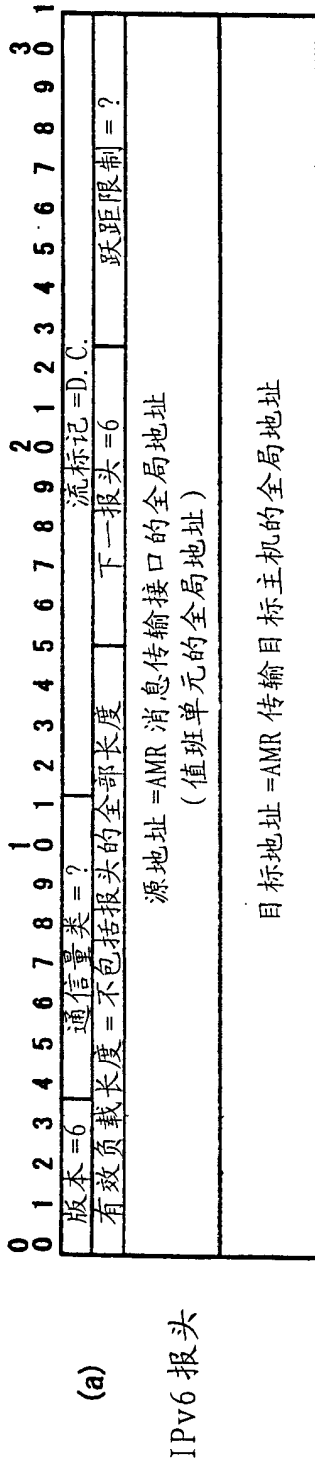 (a)
0 1 2 3
0 1 2 3 4 5 6 7 8 9 0 1 2 3 4 5 6 7 8 9 0 1 2 3 4 5 6 7 8 9 0 1
版本=6 通信量类=? 流标记=D.C.
有效负载长度=不包括报头的全部长度 下一报头=6 跃距限制=?
IPv6 报头
源地址=AMR 消息传输接口的全局地址
(值班单元的全局地址)
目标地址=AMR 传输目标主机的全局地址